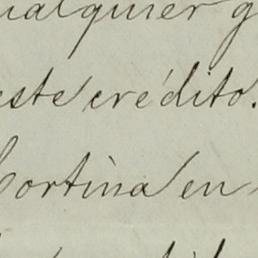 ualquier g
este crédito.
Cortina en